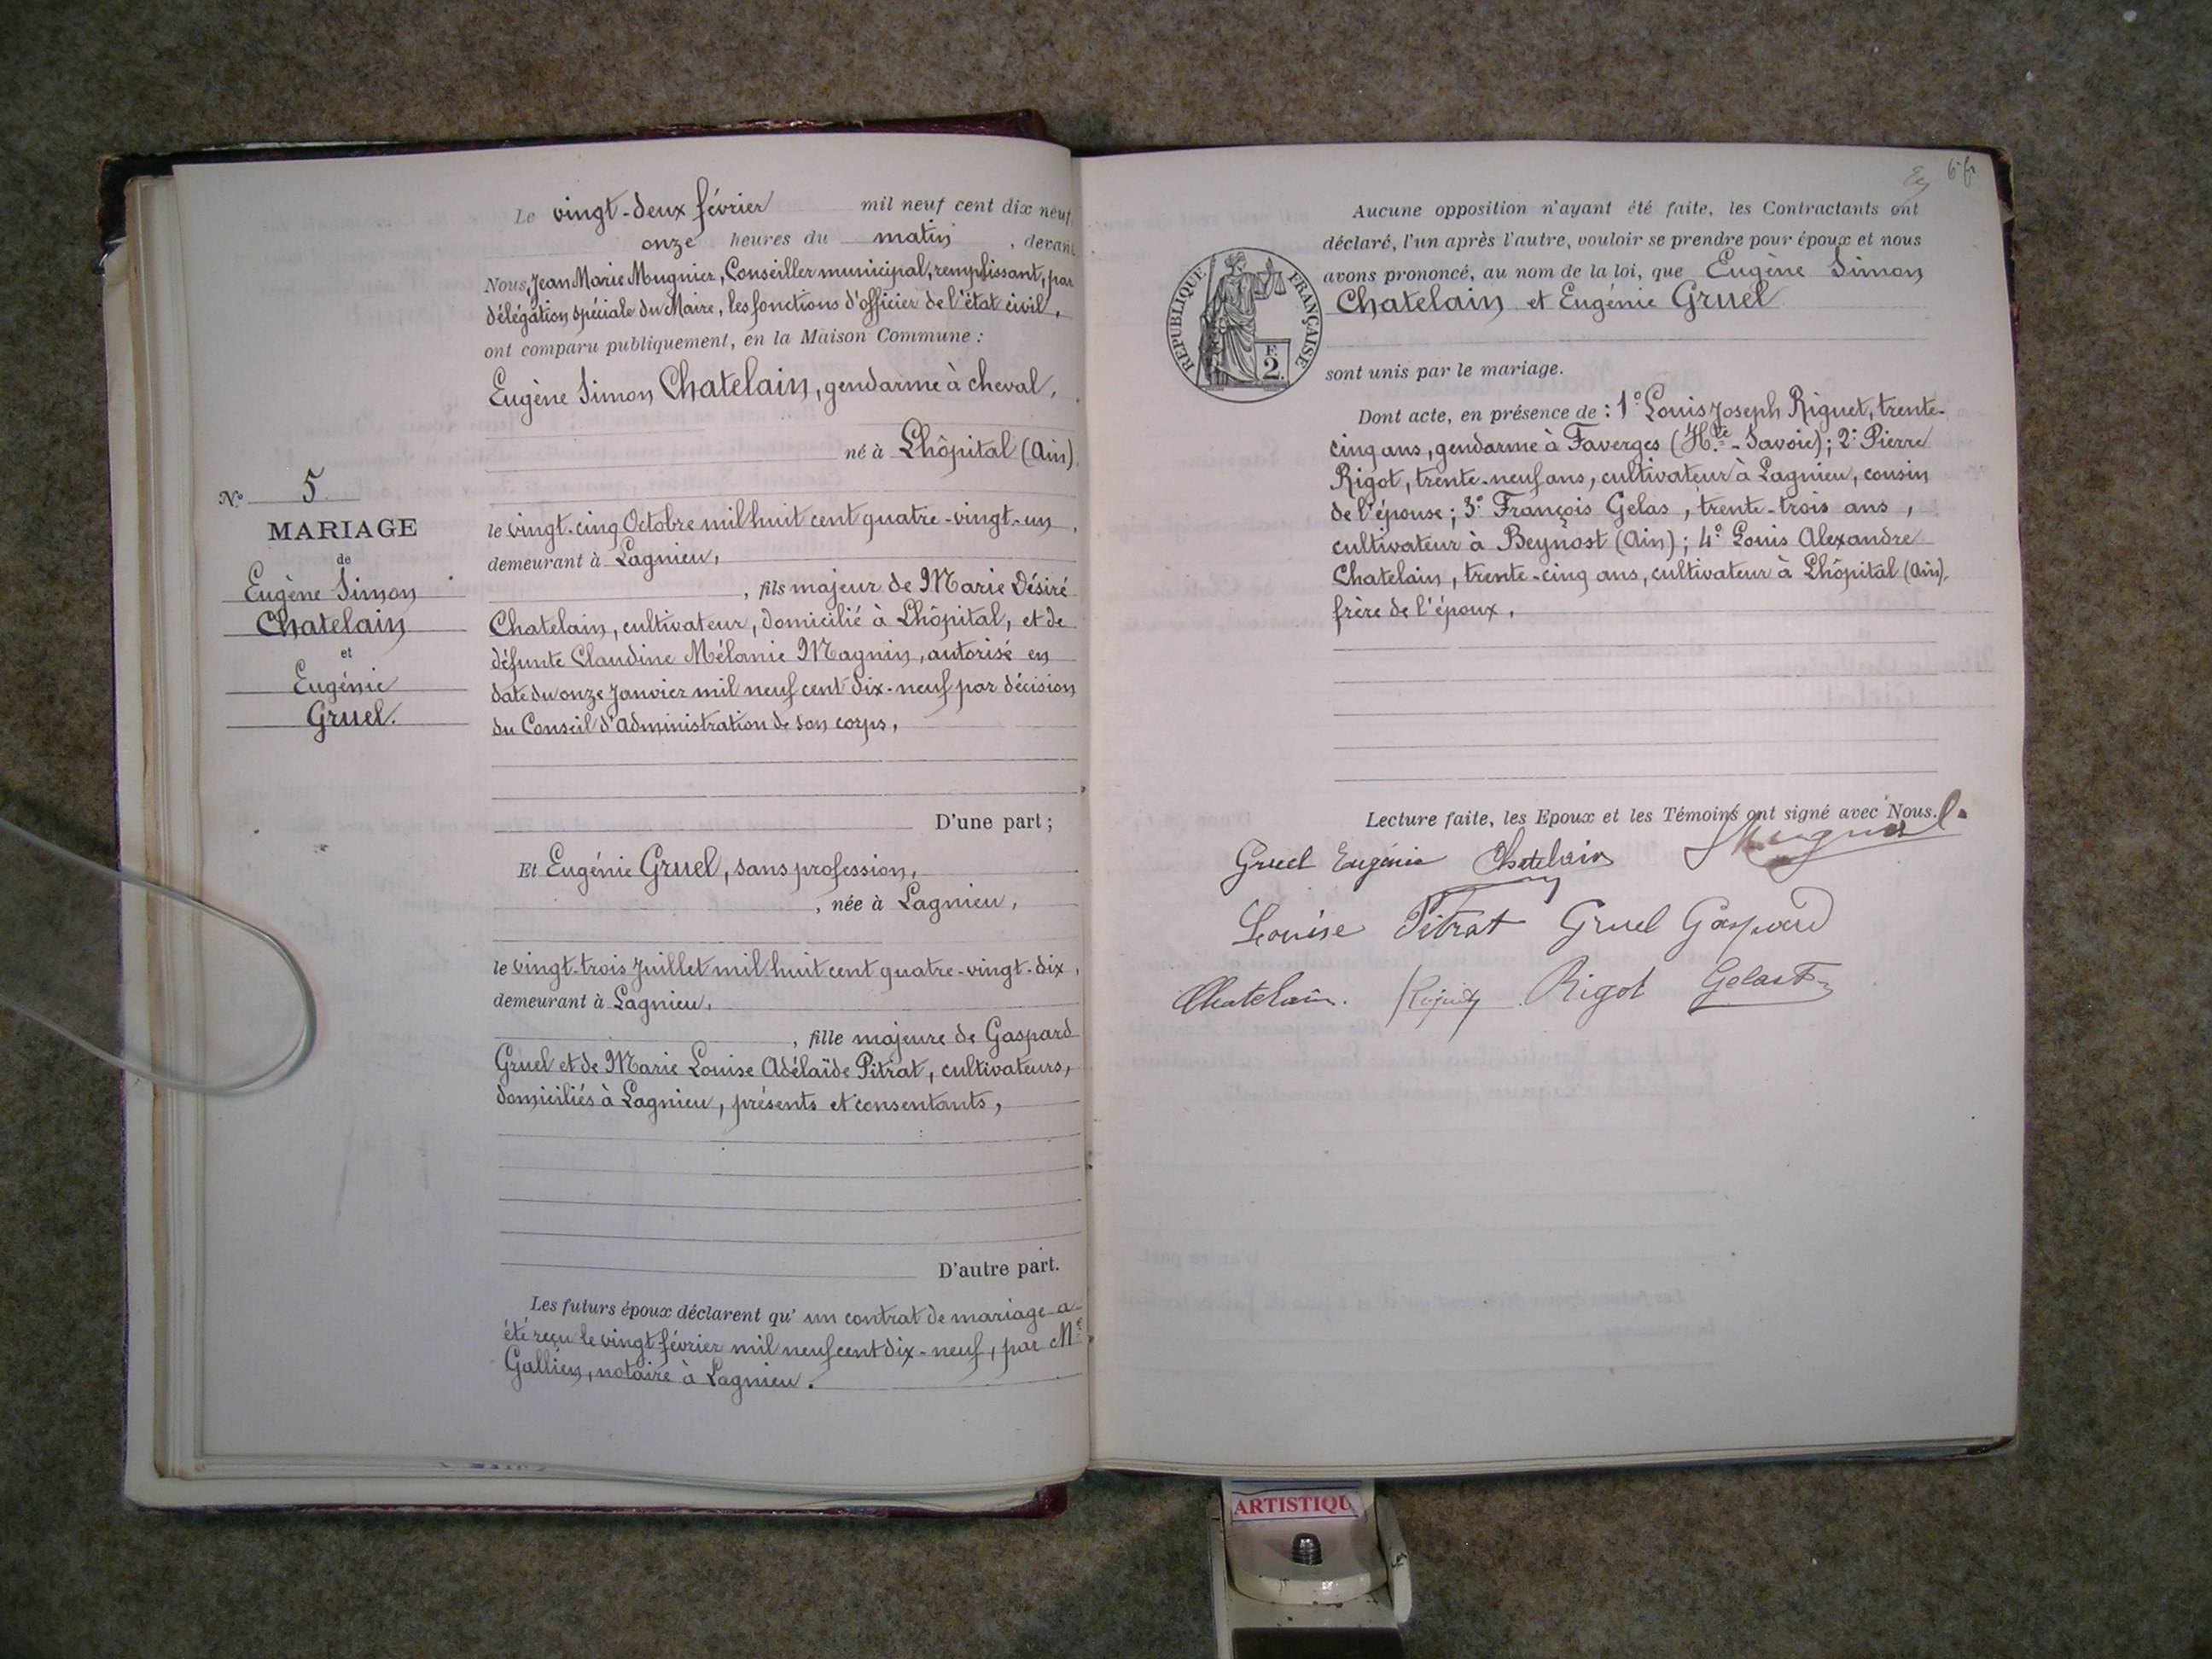 Le vingt-deux février mil neuf cent dix neuf,
onze heures du matin, devant
Nous, Jean Marie Mugnier, Conseiller municipal, remplissant, par
délégation spéciale du Maire, les fonctions d'officier de l'état civil,
ont comparu publiquement, en la Maison Commune :
Eugène Simon Chatelain, gendarme à cheval,
né à Lhôpital (Ain),
le vingt-cinq Octobre mil huit cent quatre-vingt-un,
demeurant à Lagnieu,
, fils majeur de Marie Désiré
Chatelain, cultivateur, domicilié à Lhôpital, et de
défunte Claudine Mélanie Magnin, autorisé en
date du onze Janvier mil neuf cent dix-neuf par décision
du Conseil d'Administration de son corps,
D'une part ;
Et Eugénie Gruel, sans profession,
, née à Lagnieu,
le vingt-trois Juillet mil huit cent quatre-vingt-dix,
demeurant à Lagnieu,
, fille majeure de Gaspard
Gruel et de Marie Louise Adélaïde Pitrat, cultivateurs,
domiciliés à Lagnieu, présents et consentants,
D'autre part.
Les futurs époux déclarent qu'un contrat de mariage a
été reçu le vingt février mil neuf cent dix-neuf, par Me
Gallien, notaire à Lagnieu.
No 5
MARIAGE
de
Eugène Simon
Chatelain
et
Eugénie
Gruel.
Aucune opposition n'ayant été faite, les Contractants ont
déclaré, l'un après l'autre, vouloir se prendre pour époux et nous
avons prononcé, au nom de la loi, que Eugène Simon
Chatelain et Eugénie Gruel
sont unis par le mariage.
RÉPUBLIQUE FRANÇAISE
F.
2.
Dont acte, en présence de : 1° Louis Joseph Riguet, trente-
cinq ans, gendarme à Faverges (Hte-Savoie) ; 2° Pierre
Rigot, trente-neuf ans, cultivateur à Lagnieu, cousin
de l'épouse ; 3° François Gelas, trente-trois ans,
cultivateur à Beynost (Ain) ; 4° Louis Alexandre
Chatelain, trente-cinq ans, cultivateur à Lhôpital (Ain),
frère de l'époux.
Lecture faite, les Epoux et les Témoins ont signé avec Nous.
Gruel Eugénie Chatelain
Louise Pitrat Gruel Gaspard
Chatelain. Rigot Gelas F
ARTISTIQU